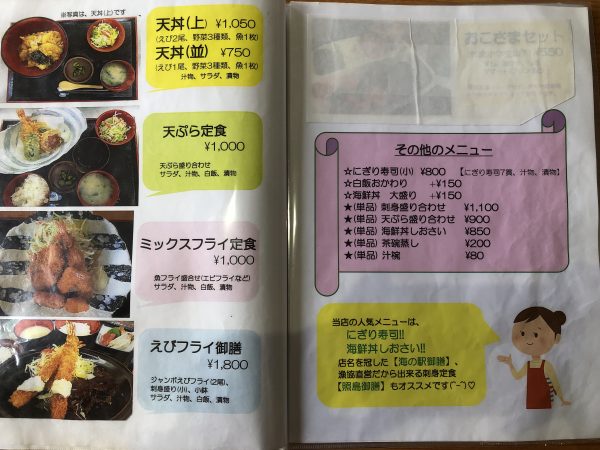 ※写真は、天丼(上)です
天丼(上) ¥1,050
(えび2尾、野菜3種類、魚1枚)
天丼(並) ¥750
(えび1尾、野菜3種類、魚1枚)
汁物、サラダ、漬物
天ぷら定食
¥1,000
天ぷら盛り合わせ
サラダ、汁物、白飯、漬物
ミックスフライ定食
¥1,000
魚フライ盛合せ(エビフライなど)
サラダ、汁物、白飯、漬物
えびフライ御膳
¥1,800
ジャンボえびフライ(2尾)、
刺身盛り(小)、小鉢
サラダ、汁物、白飯、漬物
おこさまセット
¥550
その他のメニュー
☆にぎり寿司(小) ¥800 【にぎり寿司7貫、汁物、漬物】
☆白飯おかわり +¥150
☆海鮮丼 大盛り +¥150
★(単品) 刺身盛り合わせ ¥1,100
★(単品) 天ぷら盛り合わせ ¥900
★(単品) 海鮮丼しおさい ¥850
★(単品) 茶碗蒸し ¥200
★(単品) 汁椀 ¥80
当店の人気メニューは、
にぎり寿司!!
海鮮丼しおさい!!
店名を冠した【海の駅御膳】、
漁協直営だから出来る刺身定食
【照島御膳】もオススメです(^-^)♡